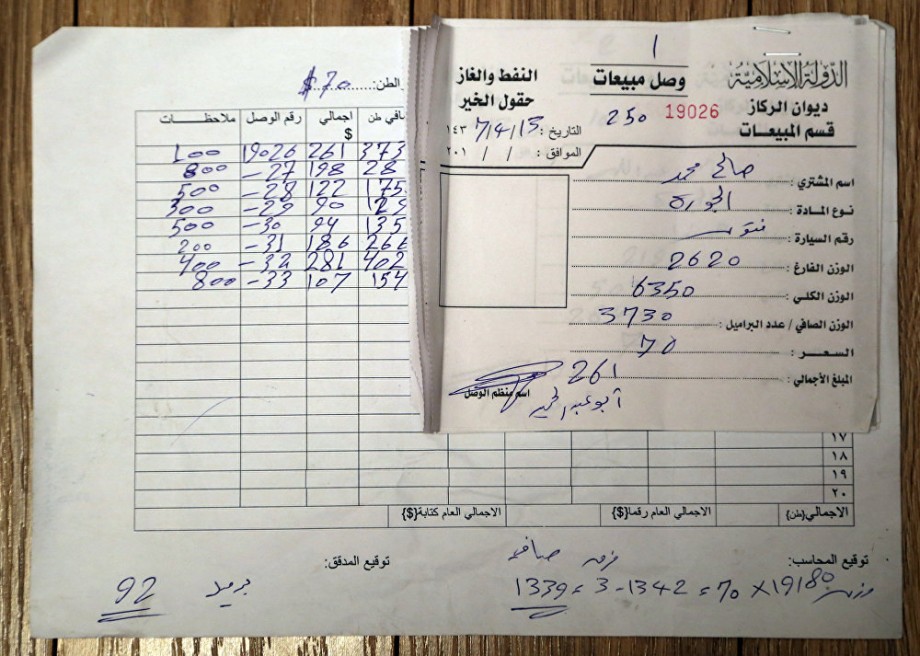 الدولة الإسلامية
ديوان الركاز
قسم المبيعات
1
وصل مبيعات
250 19026
النفط والغاز
حقول الخير
التاريخ: 15/4/7 ١٤٣
الموافق: / / ٢٠١
اسم المشتري: صالح محمد
نوع المادة:
رقم السيارة:
الوزن الفارغ: 2620
الوزن الكلي: 6350
الوزن الصافي / عدد البراميل: 3730
السعر: 70
المبلغ الأجمالي: 261
اسم منظم الوصل
الطن: $70
صافي طن اجمالي $ رقم الوصل ملاحظات
373 261 19026 100
28 198 27- 800
175 122 28- 500
129 90 29- 300
135 94 30- 500
266 186 31- 200
402 281 32- 400
154 107 33- 800
١٧
١٨
١٩
٢٠
الاجمالي{طن} الاجمالي العام رقما{$} الاجمالي العام كتابة{$}
توقيع المحاسب: توقيع المدقق:
19180 × 70 = 1342 - 3 = 1339
برميل 92